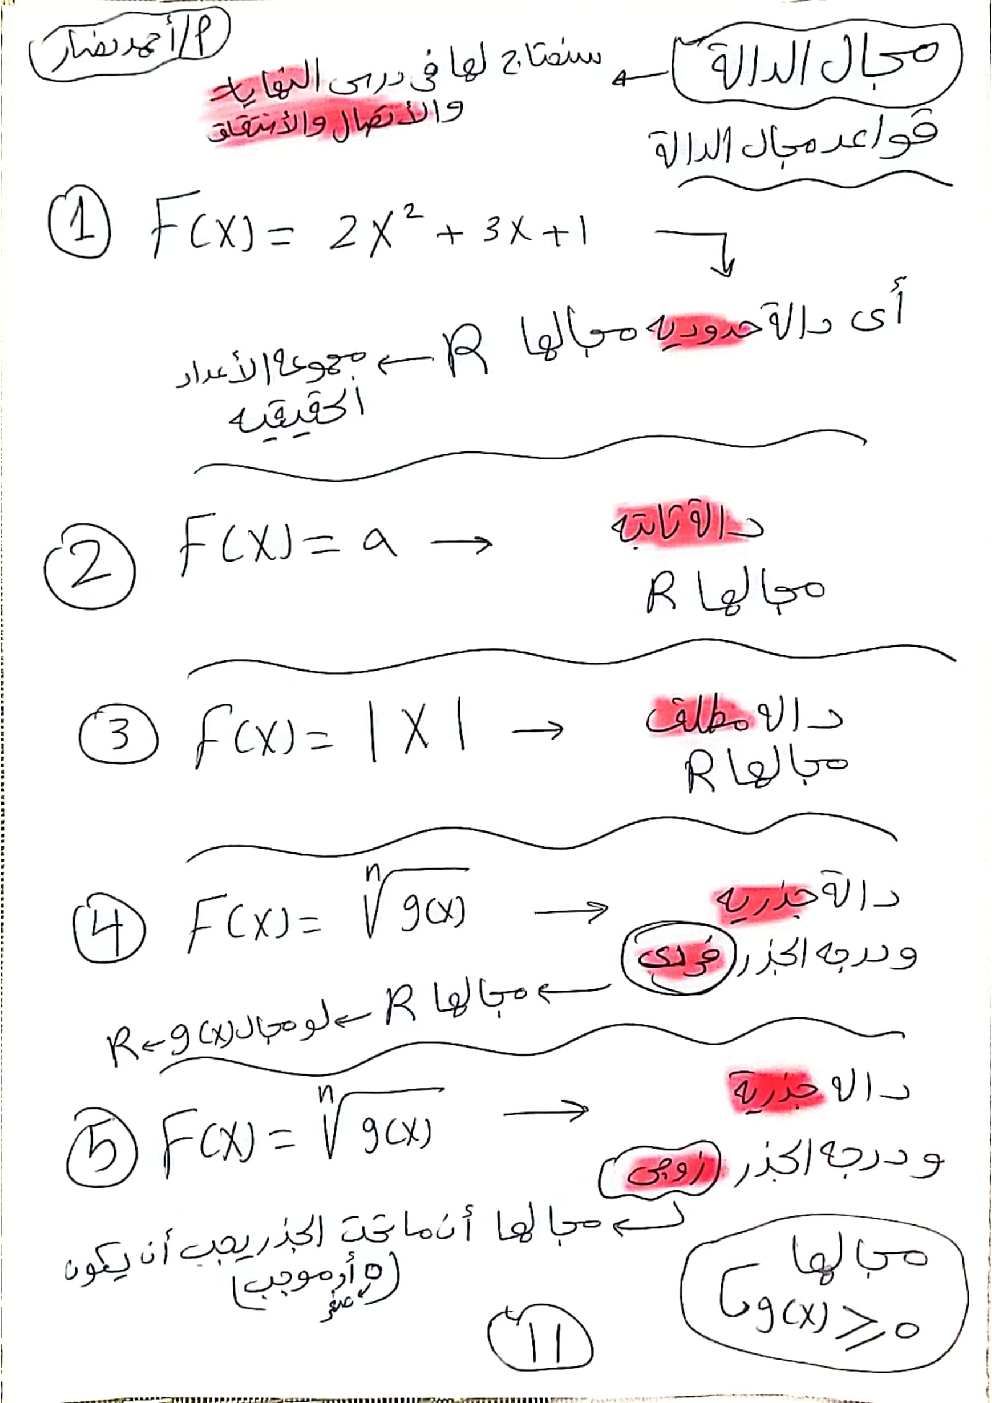 م/أحمد نصار
مجال الدالة ← سنحتاج لها فى درس النهايات
والأتصال والأشتقاق
قواعد مجال الدالة
① F(X) = 2X² + 3X + 1
أى دالة حدوديه مجالها R ← مجموعة الأعداد
الحقيقيه
② F(X) = a → دالة ثابته
مجالها R
③ F(X) = |X| → دالة مطلق
مجالها R
④ F(X) = ⁿ√g(x) → دالة جذريه
ودرجة الجذر فردى
← مجالها R ← لو مجال g(x) ← R
⑤ F(X) = ⁿ√g(x) → دالة جذرية
ودرجة الجذر زوجى
← مجالها أن ما تحت الجذر يجب أن يكون
(0 أو موجب)
صفر
مجالها
g(x) ≥ 0
11